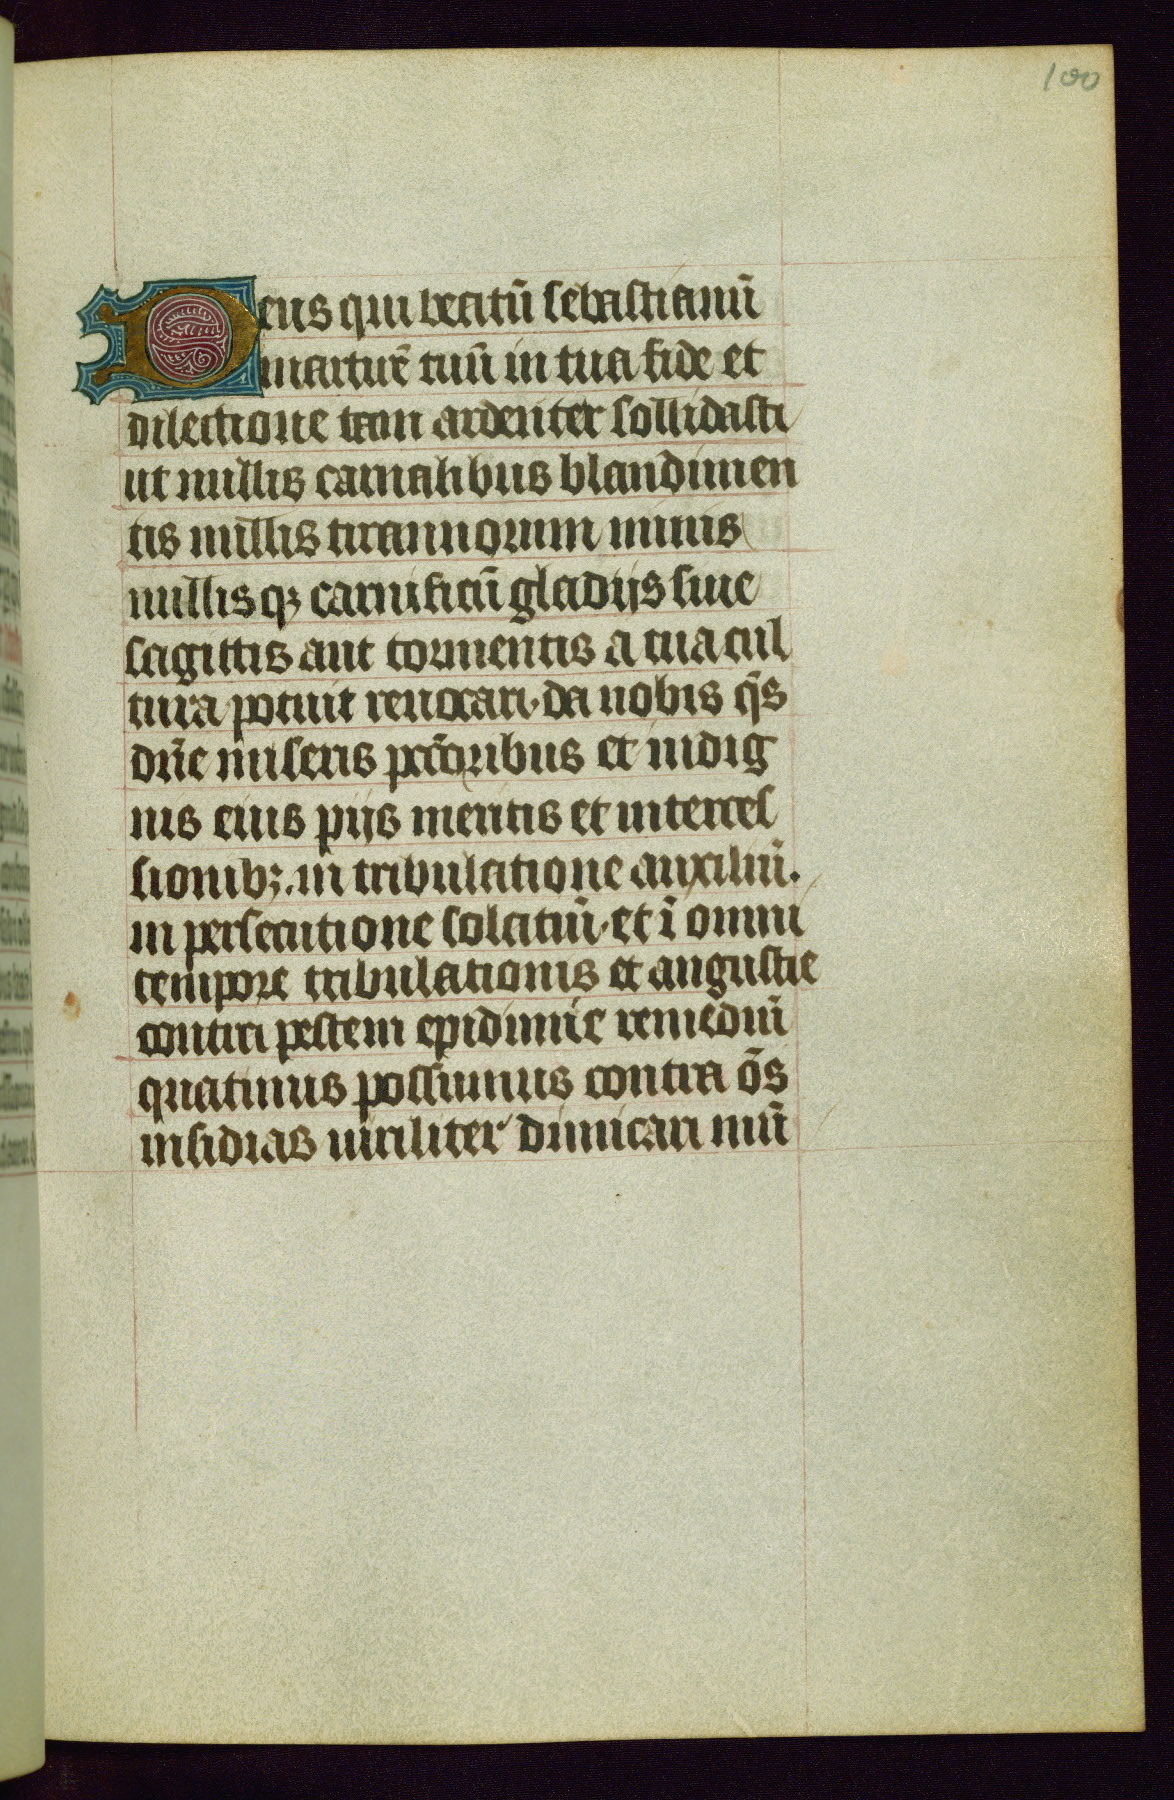 100
Deus qui beatū sebastianū
martirē tuū in tua fide et
dilectione tam ardenter sollidasti
ut nullis carnalibus blandimen
tis nullis tirannorum minis
nullisqꝫ carnificū gladijs siue
sagittis aut tormentis a tua cul
tura potuit reuocari. da nobis q̄s
dn̄e miseris pctōribus et indig
nis eius pijs meritis et interces
sionibꝫ. in tribulatione auxiliū.
in persecutione solatiū. et ī omni
tempore tribulationis et angustie
contra pestem epidimie remediū
quatinus possimus contra ōs
insidias uiriliter dimicari mū